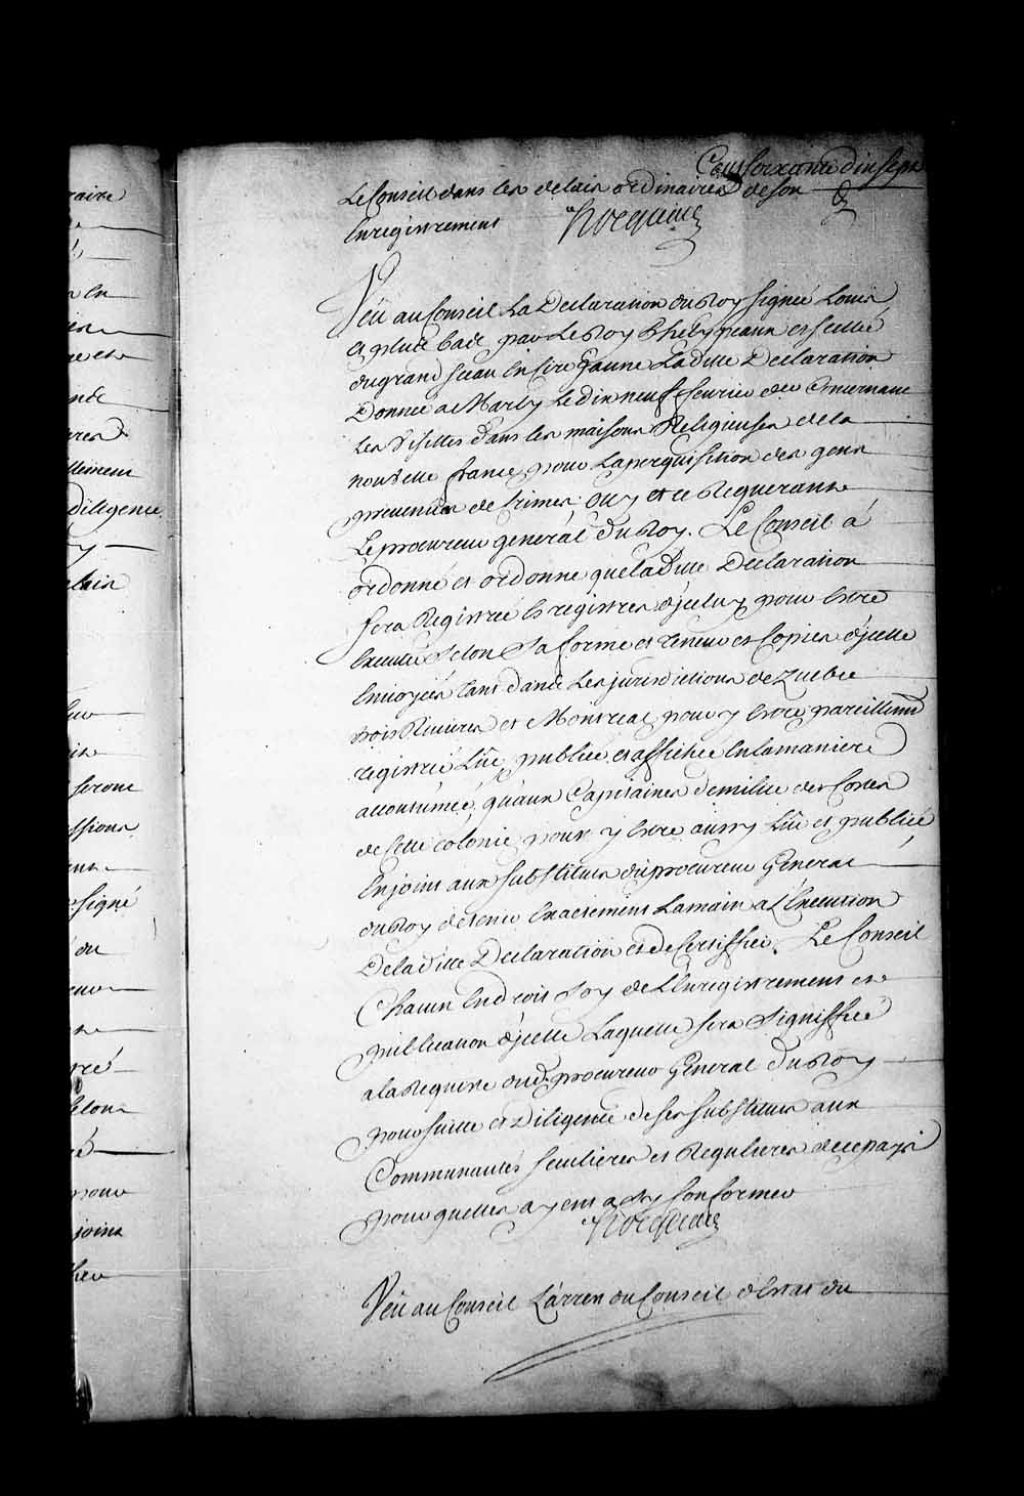 Cent soixante dix sept
Le Conseil dans les delais ordinaires de son
Enregistrement hocquart
Veu au Conseil La Declaration du Roy signée Louis
et plus bas par Le Roy Phelypeaux et scellé
du grand sceau en cire jaune Ladite Declaration
Donnée a Marly Le dix neuf fevrier dernier Concernant
Les Visittes dans les maisons Religieuses de la
nouvelle france, pour La perquisition des gens
prevenus de Crimes; Ouy et ce Requerant
Le procureur general du Roy. Le Conseil á
ordonné et ordonne que Ladite Declaration
sera Registrée Es registres d'jceluy pour Estre
Executée selon Sa forme et teneur et Copies d'jcelle
Envoyées tant dans Les jurisdictions de Quebec
trois Rivieres et Montreal pour y Estre pareillemt
registrée Lüe, publiée et affichée En la maniere
accoutumée, qu'aux Capitaines de milice des Costes
de Cette colonie pour y Estre aussy Lüe et publiée
Enjoint aux substituts du procureur General
du Roy de tenir Exactement La main a L'Execution
De ladite Declaration et de Certiffier Le Conseil
Chacun En droit soy de L'Enregistrement et
publication d'jcelle Laquelle sera signiffiée
a la Requeste dud. procureur General du Roy
poursuitte et Diligence de ses substituts aux
Communautés seculieres et Regulieres de ce pays
pour quelles ayent a s'y Conformer
hocquart
Veu au Conseil L'arrest du Conseil d'Estat du
raire
n en
re et
nde
llement
diligence
seront
ssions
signé
du
tré
selon
pour
joint